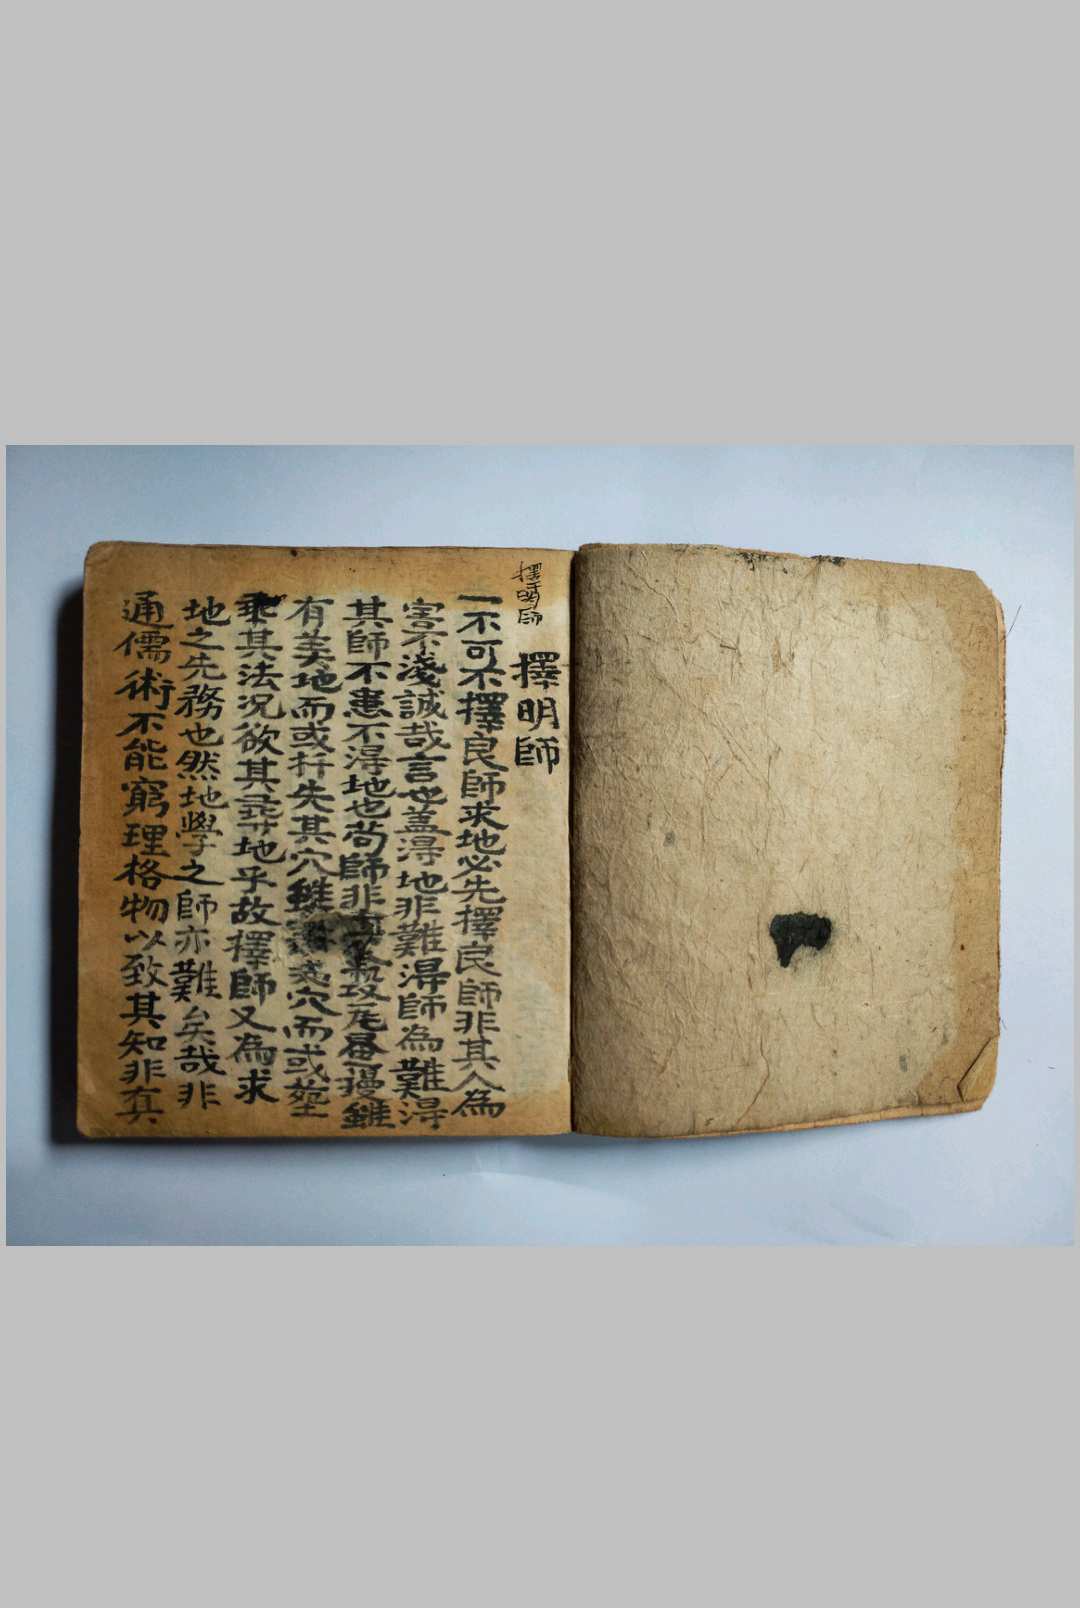 擇明師
擇明師
一不可不擇良師求地必先擇良師非其人為
害不淺誠哉言也盖得地非難得師為難得
其師不患不得地也苟師非真攻昼擾雖
有美地而或扦失其穴雖穴而或塟
乘其法况欲其尋地乎故擇師又為求
地之先務也然地學之師亦難矣哉非
通儒術不能窮理格物以致其知非有真